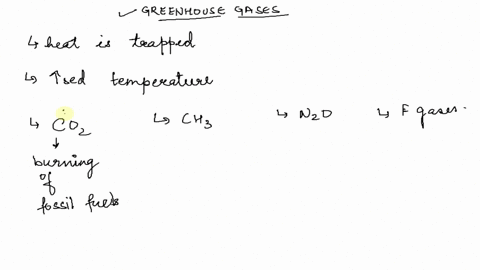 ✓ GREENHOUSE GASES
↳ heat is trapped
↳ ↑sed temperature
↳ CO₂ ↳ CH₃ ↳ N₂O ↳ F gases.
↓
burning
of
fossil fuels